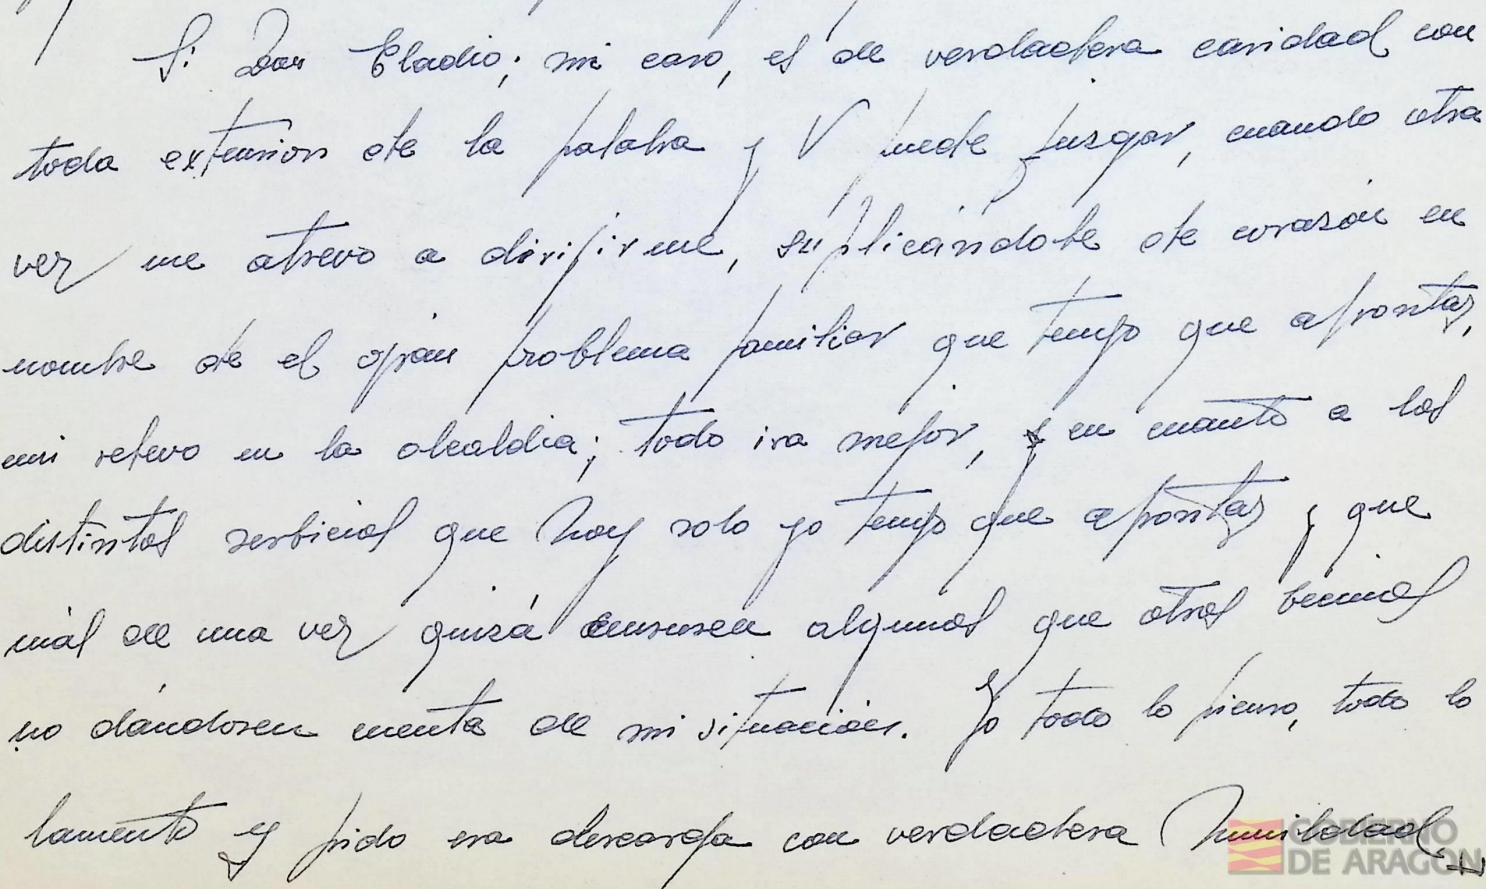 Si Don Eladio; mi caso, es de verdadera caridad con
toda extension de la palabra y V puede juzgar, cuando otra
vez me atrevo a dirijirme, suplicándole de corazón en
nombre de el gran problema familiar que tengo que afrontar,
mi relevo en la alcaldia; todo ira mejor, y en cuanto a los
distintos serbicios que hoy solo yo tengo que afrontar y que
más de una vez quizá censuren algunos que otros becinos
no dándosen cuenta de mi situación. Yo todo lo pienso, todo lo
lamento y pido esa descarga con verdadera humildad,
GOBIERNO
DE ARAGON